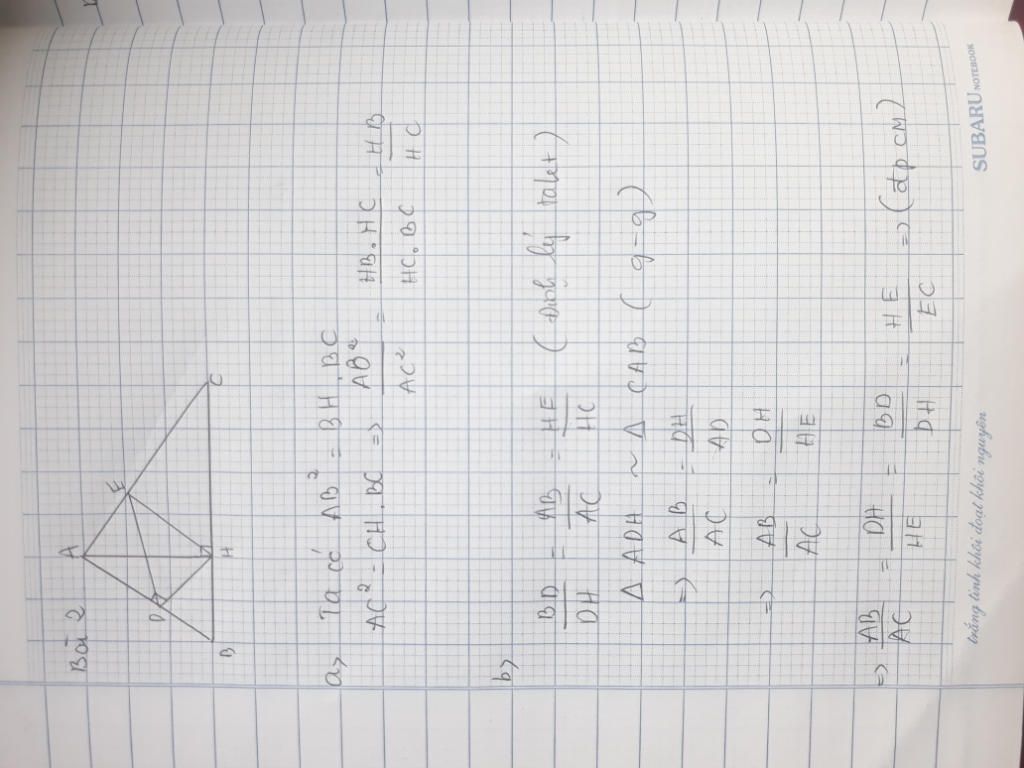 Bài 2
A
E
D
B
H
C
a, Ta có AB² = BH.BC
AC² = CH.BC => AB²/AC² = HB.HC/HC.BC = HB/HC
b, BD/DH = AB/AC = HE/HC (Định lý talet)
Δ ADH ~ Δ CAB (g-g)
=> AB/AC = DH/AD
=> AB/AC = DH/HE
=> AB/AC = DH/HE = BD/DH = HE/EC => (dpcm)
trắng tinh khôi đoạt khôi nguyên
SUBARU NOTEBOOK